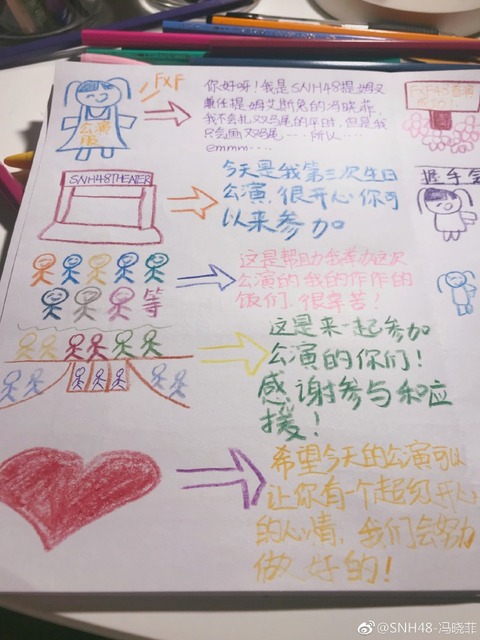 FXF
公演服
你好呀！我是SNH48提姆X
兼任提姆艾斯兔的冯晓菲，
我不会扎双马尾的平时，但是我
只会画双马尾……所以……
emmm……
SNH48THEATER
今天是我第三次生日
公演，很开心你可
以来参加。
这是帮助我举办这次
公演的我的炸炸的
饭们，很辛苦！
等
这是来一起参加
公演的你们！
感谢参与和应
援！
希望今天的公演可以
让你有一个超级开心
的心情，我们会努力
做好的！
握手会
@SNH48-冯晓菲